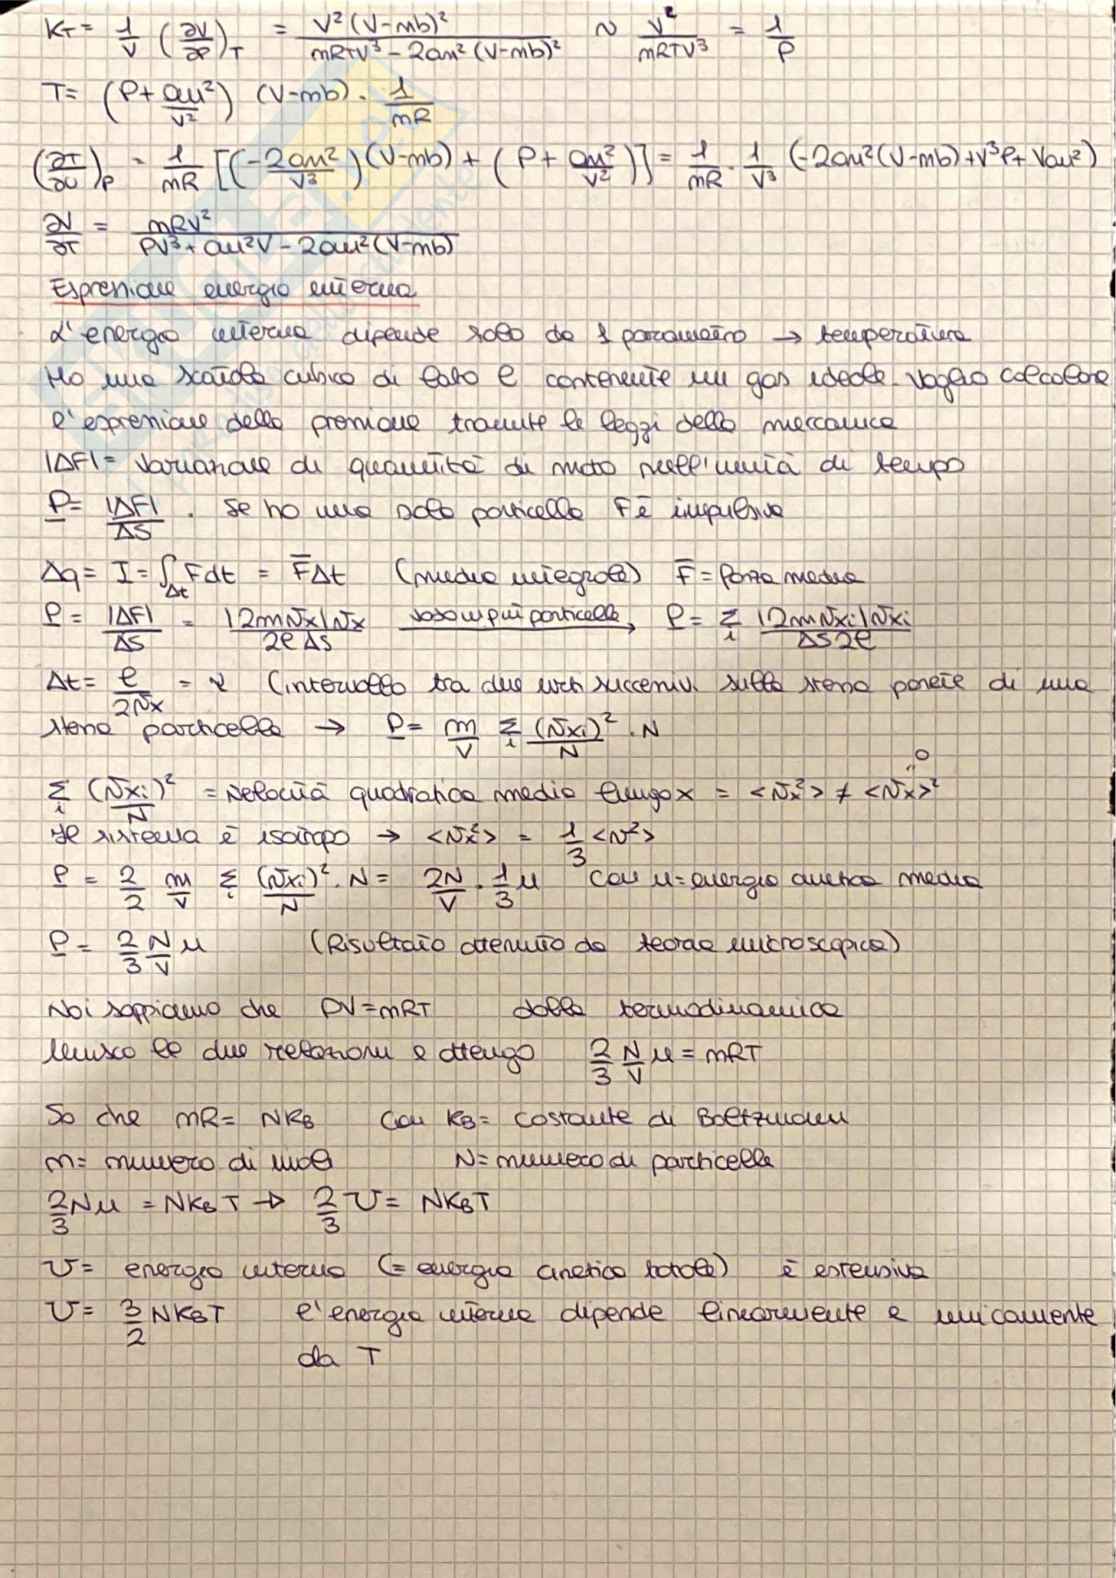 KT = 1/V (∂V/∂P)T = V²(V-nb)² / nRTV³ - 2an²(V-nb)² ~ V²/nRTV³ = 1/P
T = (P + an²/V²) (V-nb) · 1/nR
(∂T/∂V)P = 1/nR [(-2an²/V³)(V-nb) + (P + an²/V²)] = 1/nR · 1/V³ (-2an²(V-nb) + V³P + Van²)
∂V/∂T = nRV² / PV³ + an²V - 2an²(V-nb)
Espressione energia interna
L'energia interna dipende solo da 1 parametro → temperatura
Ho una scatola cubica di lato l contenente un gas ideale. Voglio calcolare
l'espressione della pressione tramite le leggi della meccanica
|ΔF| = Variazione di quantità di moto nell'unità di tempo
P = |ΔF|/ΔS . Se ho una sola particella F è impulsiva
Δq = I = ∫Δt Fdt = F̄Δt (media integrale) F̄ = forza media
P = |ΔF|/ΔS = |2mvx|vx / 2lΔS → P = Σi |2mvxi|vxi / ΔS2l
Δt = l/2vx = τ (intervallo tra due urti successivi sulla stessa parete di una
stessa particella → P = m/V Σi (vxi)²/N · N
Σi (vxi)²/N = velocità quadratica media lungo x = <vx²> ≠ <vx>² = 0
Se sistema è isotropo → <vx²> = 1/3 <v²>
P = 2/2 m/V Σi (vxi)²/N · N = 2N/V · 1/3 u con u = energia cinetica media
P = 2/3 N/V u (Risultato ottenuto da teoria microscopica)
Noi sappiamo che PV = nRT dalla termodinamica
Unisco le due relazioni e ottengo 2/3 N/V u = nRT
So che nR = NKB con KB = costante di Boltzmann
n = numero di moli N = numero di particelle
2/3 Nu = NKBT → 2/3 U = NKBT
U = energia interna (= energia cinetica totale) è estensiva
U = 3/2 NKBT l'energia interna dipende linearmente e unicamente
da T